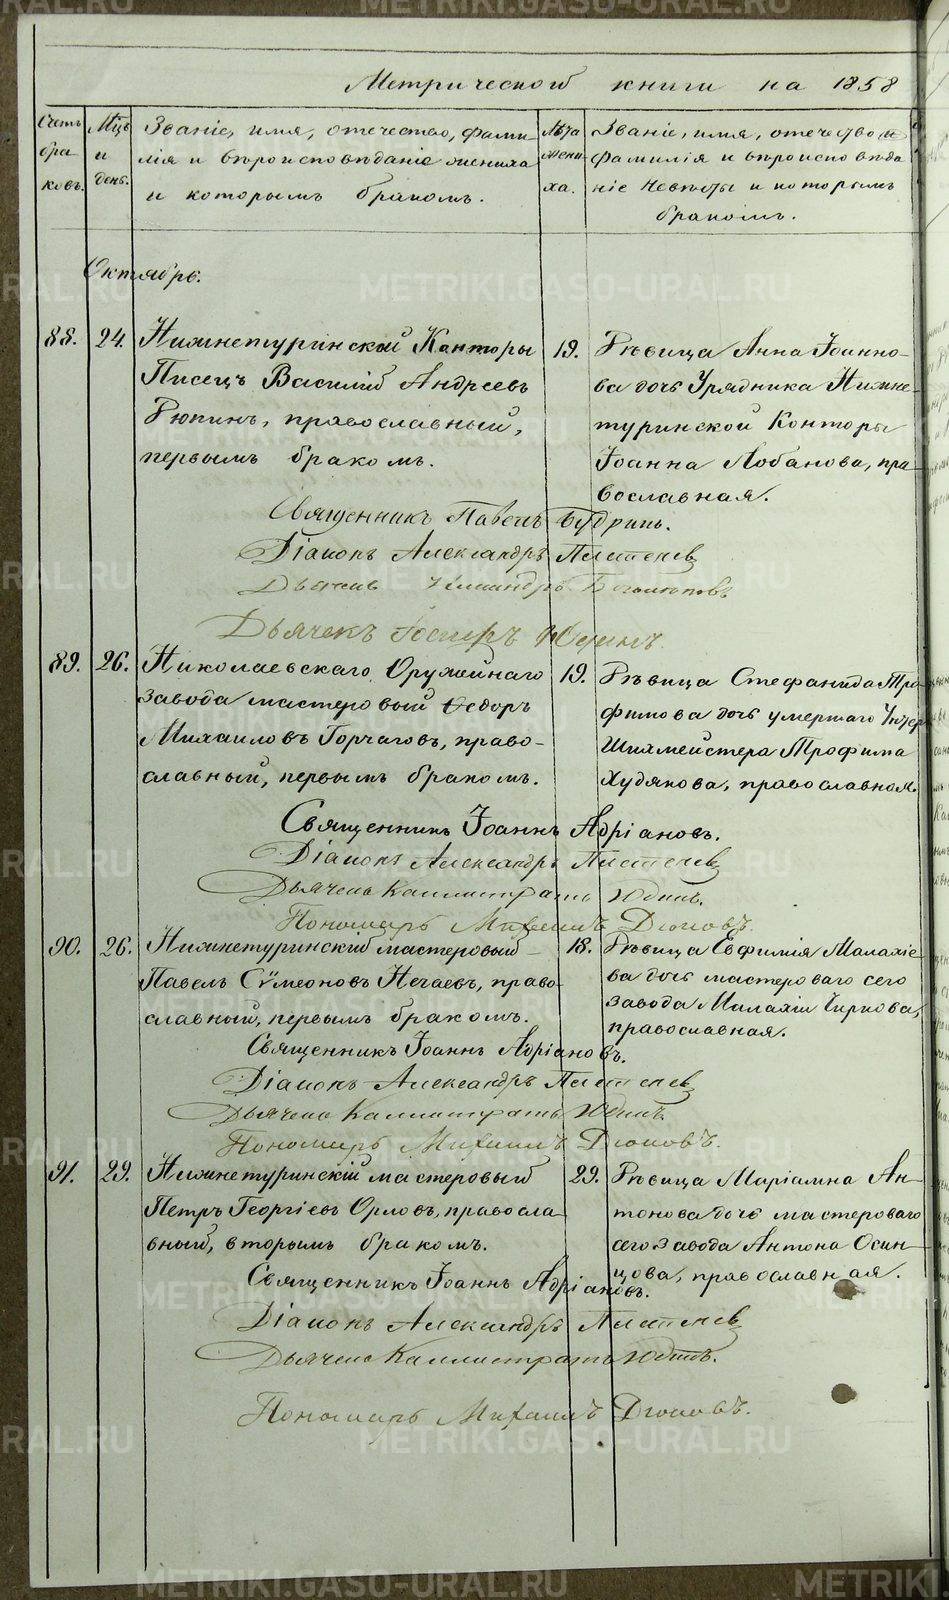 Метрической книги на 1858
Счетъ бра- ковъ.
Мцъ и день.
Званіе, имя, отечество, фами-
лія и вѣроисповѣданіе жениха
и которымъ бракомъ.
Лѣта жени- ха.
Званіе, имя, отечество и
фамилія и вѣроисповѣда
ніе Невѣсты и которымъ
бракомъ.
Октябрь.
88. 24. Нижнетуринской Канторы
Писецъ Василій Андреевъ
Рюпинъ, православный,
первымъ бракомъ.
19. Дѣвица Анна Іоанно-
ва дочь Урядника Нижне-
туринской Конторы
Іоанна Лобанова, пра-
вославная.
Священникъ Павелъ Будринъ.
Діаконъ Александръ
Дьячекъ
Дьячек Юдинъ
89. 26. Николаевскаго Оружейнаго
завода мастеровый Ѳедоръ
Михаиловъ Горчаговъ, право-
славный, первымъ бракомъ.
19. Дѣвица Стефанида Тро-
фимова дочь умершаго Унтер
Шихмейстера Трофима
Худякова, православная
Священникъ Іоаннъ Адріановъ.
Діаконъ Александръ
Дьячекъ Каллистратъ Юдинъ.
Пономарь Михаилъ
90. 26. Нижнетуринскій мастеровый
Павелъ Сѵмеоновъ Нечаевъ, право-
славный, первымъ бракомъ.
18. Дѣвица Евфимія Малахіе-
ва дочь мастероваго сего
завода Малахіи Чиркова,
православная.
Священникъ Іоаннъ Адріановъ.
Діаконъ Александръ
Дьячекъ Каллистратъ Юдинъ.
Пономарь Михаилъ
91. 29. Нижнетуринскій мастеровый
Петръ Георгіевъ Орловъ, правосла-
вный, вторымъ бракомъ.
29. Дѣвица Маріамна Ан-
тонова дочь мастероваго
сего завода Антона Осин-
цова, православная.
Священникъ Іоаннъ Адріановъ.
Діаконъ Александръ
Дьячекъ Каллистратъ Юдинъ.
Пономарь Михаилъ
METRIKI.GASO-URAL.RU